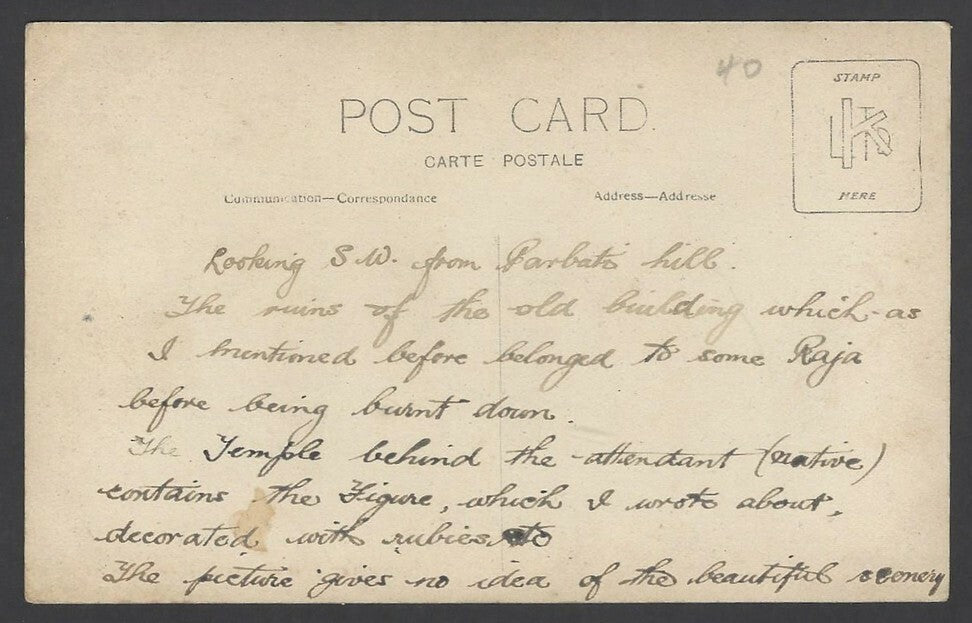 40
POST CARD.
STAMP
CARTE POSTALE
Communication—Correspondance
Address—Addresse
HERE
Looking S.W. from Parbati hill.
The ruins of the old building which as
I mentioned before belonged to some Raja
before being burnt down.
The Temple behind the attendant (native)
contains the Figure, which I wrote about,
decorated with rubies etc
The picture gives no idea of the beautiful scenery